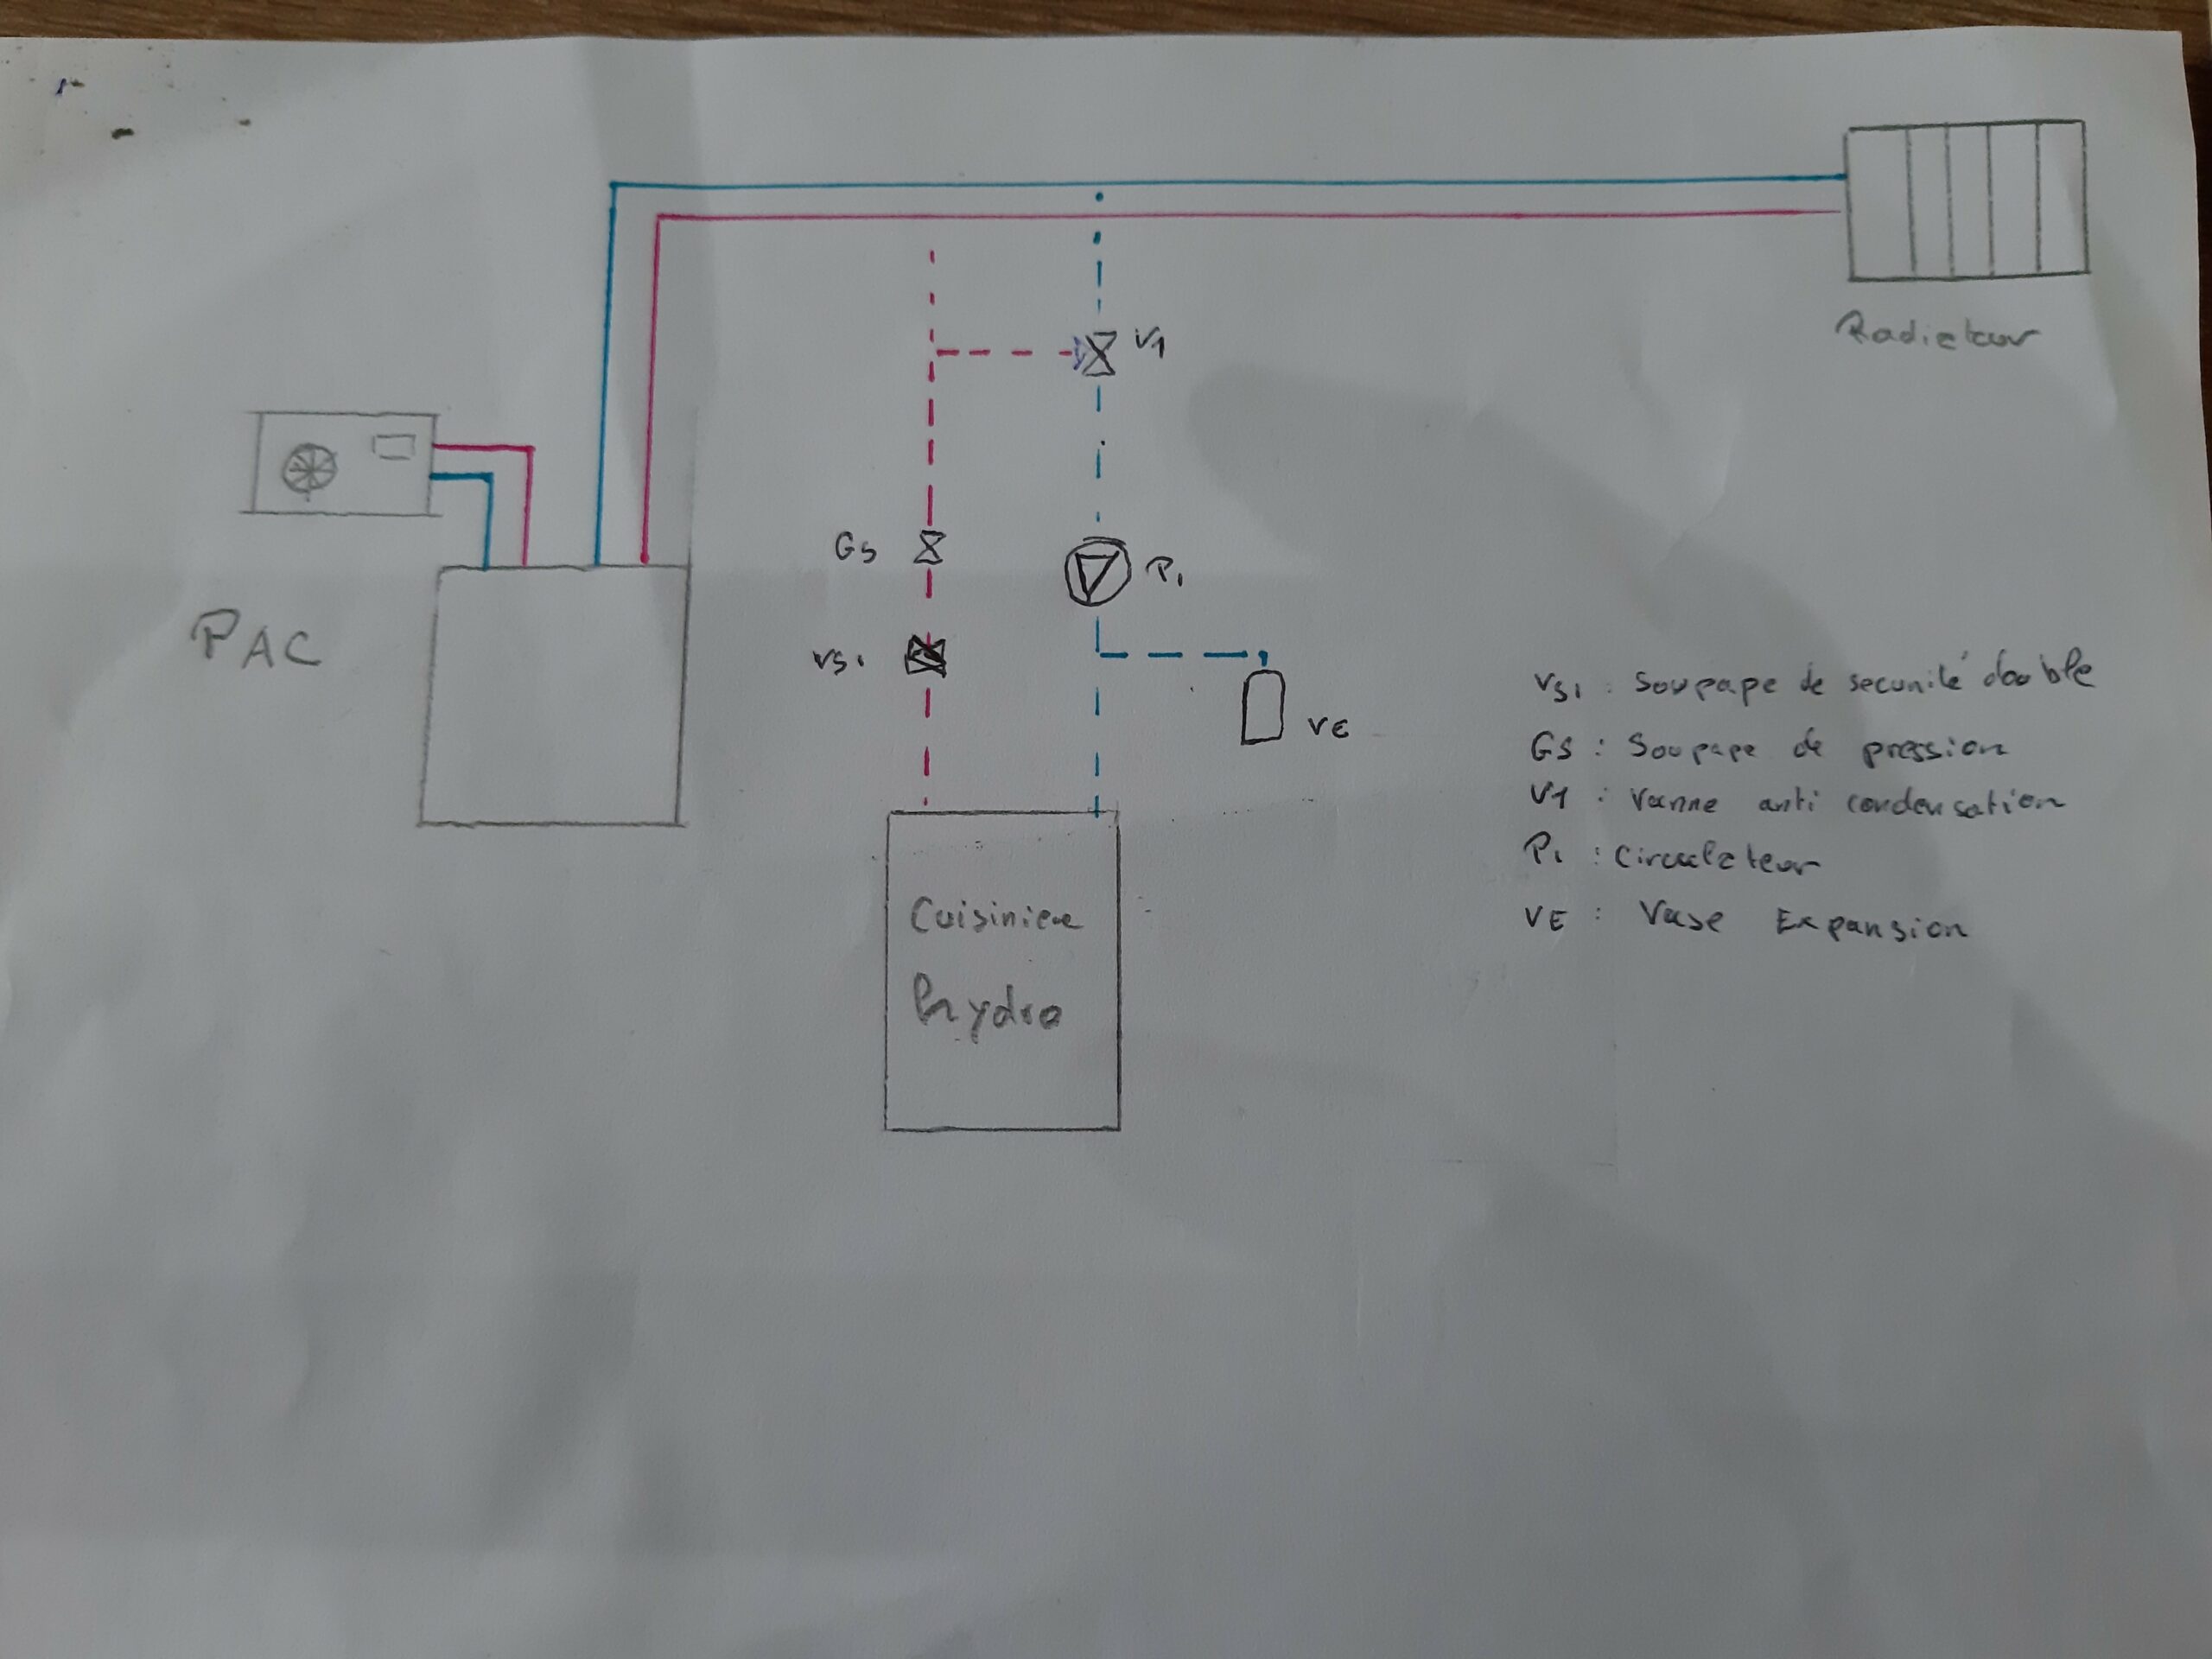 Radiateur
V1
GS
P1
PAC
VS1
VE
VS1 : Soupape de securité double
GS : Soupape de pression
V1 : Vanne anti condensation
P1 : Circulateur
VE : Vase Expansion
Cuisiniere
hydro